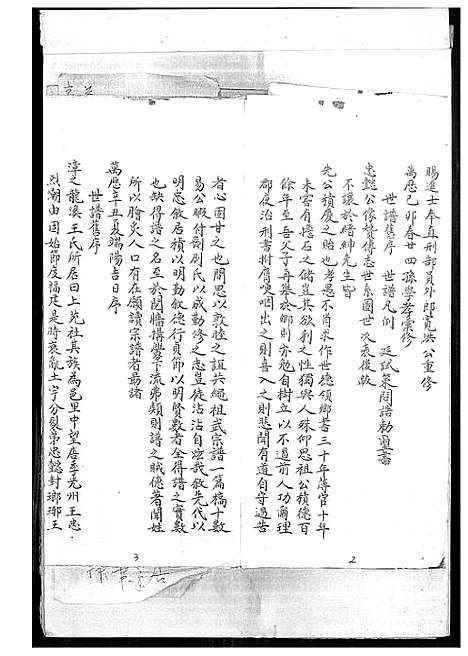 賜進士奉直刑部員外郎寬洪公重修
萬曆己卯春廿四孫學孝彙修
世譜舊序 世譜凡例 廷試策問諸勅璽書
忠懿公像贊傳志世系圖世次表後敘
不讓於縉紳先生皆
先公積慶之貽也考愚不自求作世德領鄉書三十年傳官十年
未嘗有擔石之儲豈其欲利之性獨與人殊仰思祖公積德百
餘年至吾父子再舉於鄉則亦勉自樹立以不逼前人功爾理
郡反治刑書拊膺哽咽出之則喜入之則悲聞有道自守過苦
者心固甘之也間思以敦睦之誼共繩祖武宗譜一篇稿十數
易公暇付剞劂氏以成勤修之志豈徒沾沾自炫我敘先代以
明忠敘居積以明勤敘德行貞節以明賢數者全得譜之實數
也缺得譜之名至於鬩牆構釁下流弟頹則譜之賊德者聞姓
所以膾炙人口有在願讀宗譜者勗諸
萬曆辛丑夏端陽吉日序
世譜舊序
漳之龍溪王氏所居曰上苑社其族為邑里中望唐季光州王忠
烈潮由固始節度福建是時衰亂土宇分裂弟忠懿封瑯琊王
2
3